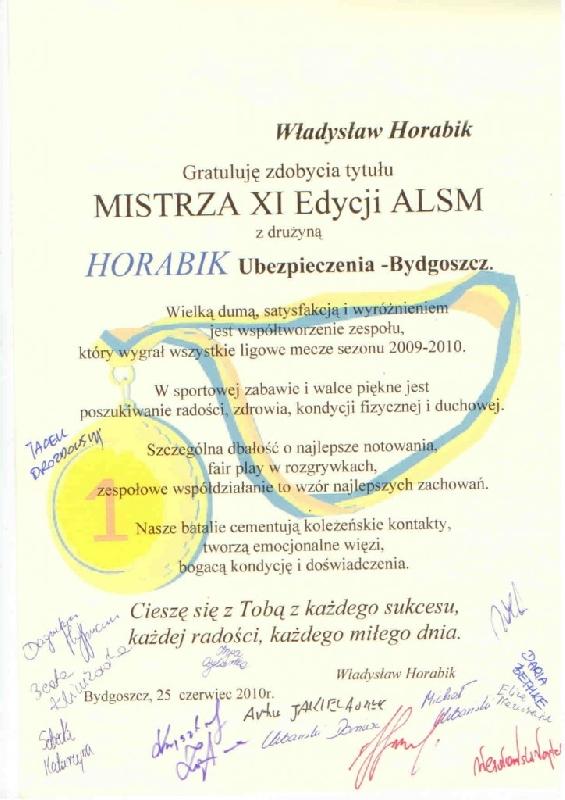 Władysław Horabik
Gratuluję zdobycia tytułu
MISTRZA XI Edycji ALSM
z drużyną
HORABIK Ubezpieczenia -Bydgoszcz.
Wielką dumą, satysfakcją i wyróżnieniem
jest współtworzenie zespołu,
który wygrał wszystkie ligowe mecze sezonu 2009-2010.
W sportowej zabawie i walce piękne jest
poszukiwanie radości, zdrowia, kondycji fizycznej i duchowej.
JACEK
DROZDOWSKI
Szczególna dbałość o najlepsze notowania,
fair play w rozgrywkach,
zespołowe współdziałanie to wzór najlepszych zachowań.
1
Nasze batalie cementują koleżeńskie kontakty,
tworzą emocjonalne więzi,
bogacą kondycję i doświadczenia.
Cieszę się z Tobą z każdego sukcesu,
każdej radości, każdego miłego dnia.
Beata
Władysław Horabik
DARIA
Bydgoszcz, 25 czerwiec 2010r.
Michał
Urbański
Katarzyna